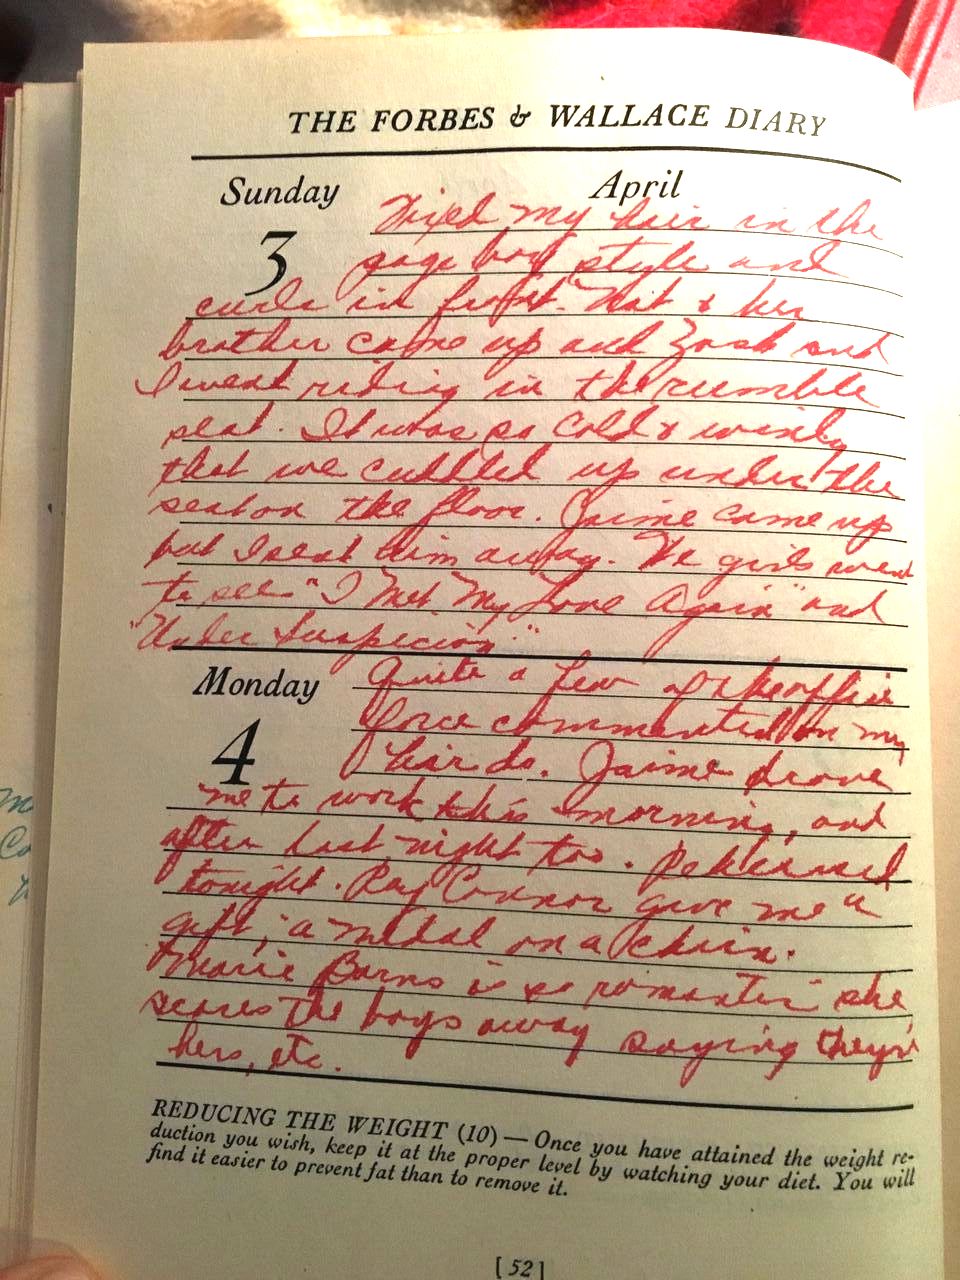 THE FORBES & WALLACE DIARY
Sunday April
3
Fixed my hair in the
page boy style and
curls in front. Nat & her
brother came up and Zosh and
I went riding in the rumble
seat. It was so cold & windy
that we cuddled up under the
seat on the floor. Jaime came up
but I sent him away. We girls went
to see "I Met My Love Again" and
"Under Suspicion"
Monday
4
Quite a few of the office
force commented on my
hair do. Jaime drove
me to work this morning, and
after last night too.
tonight. Ray Connor gave me a
gift, a medal on a chain.
Marie Barns is so romantic she
scares the boys away saying they're
hers, etc.
REDUCING THE WEIGHT (10) — Once you have attained the weight re-
duction you wish, keep it at the proper level by watching your diet. You will
find it easier to prevent fat than to remove it.
[52]